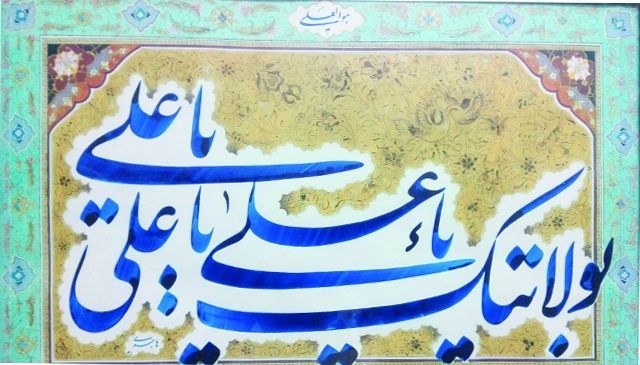 هو العلی
بولایتک یا علی یا علی یا علی